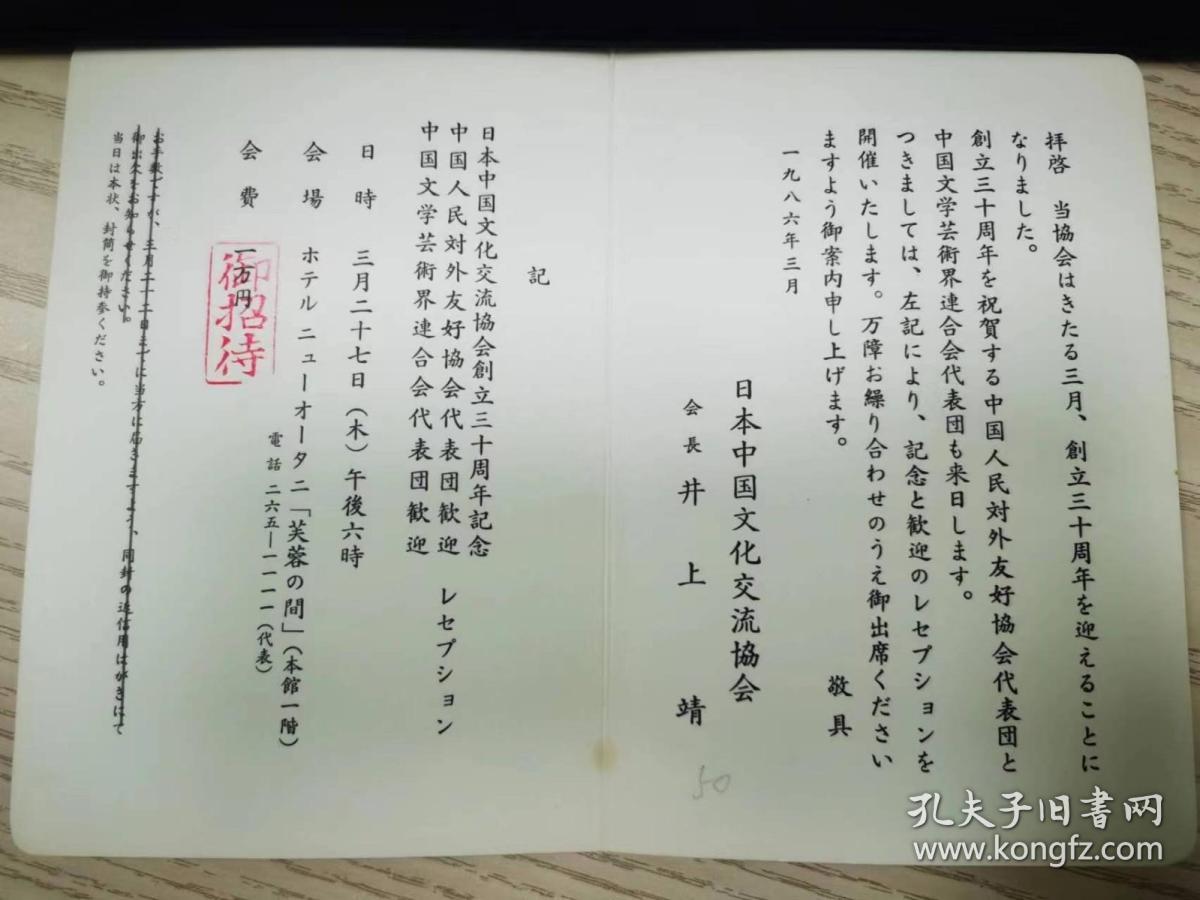 拝啓　当協会はきたる三月、創立三十周年を迎えることに
なりました。
創立三十周年を祝賀する中国人民対外友好協会代表団と
中国文学芸術界連合会代表団も来日します。
つきましては、左記により、記念と歓迎のレセプションを
開催いたします。万障お繰り合わせのうえ御出席ください
ますよう御案内申し上げます。
敬具
一九八六年三月
日本中国文化交流協会
会長 井上靖
記
日本中国文化交流協会創立三十周年記念
中国人民対外友好協会代表団歓迎
中国文学芸術界連合会代表団歓迎
レセプション
日時　三月二十七日（木）午後六時
会場　ホテルニューオータニ「芙蓉の間」（本館一階）
電話 二六五―一一一一（代表）
会費　一万円
御招待
お手数ですが、三月二十二日までに当方に届きますよう、同封の返信用はがきにて
御出欠をお知らせください。
当日は本状、封筒を御持参ください。
50
孔夫子旧书网
www.kongfz.com